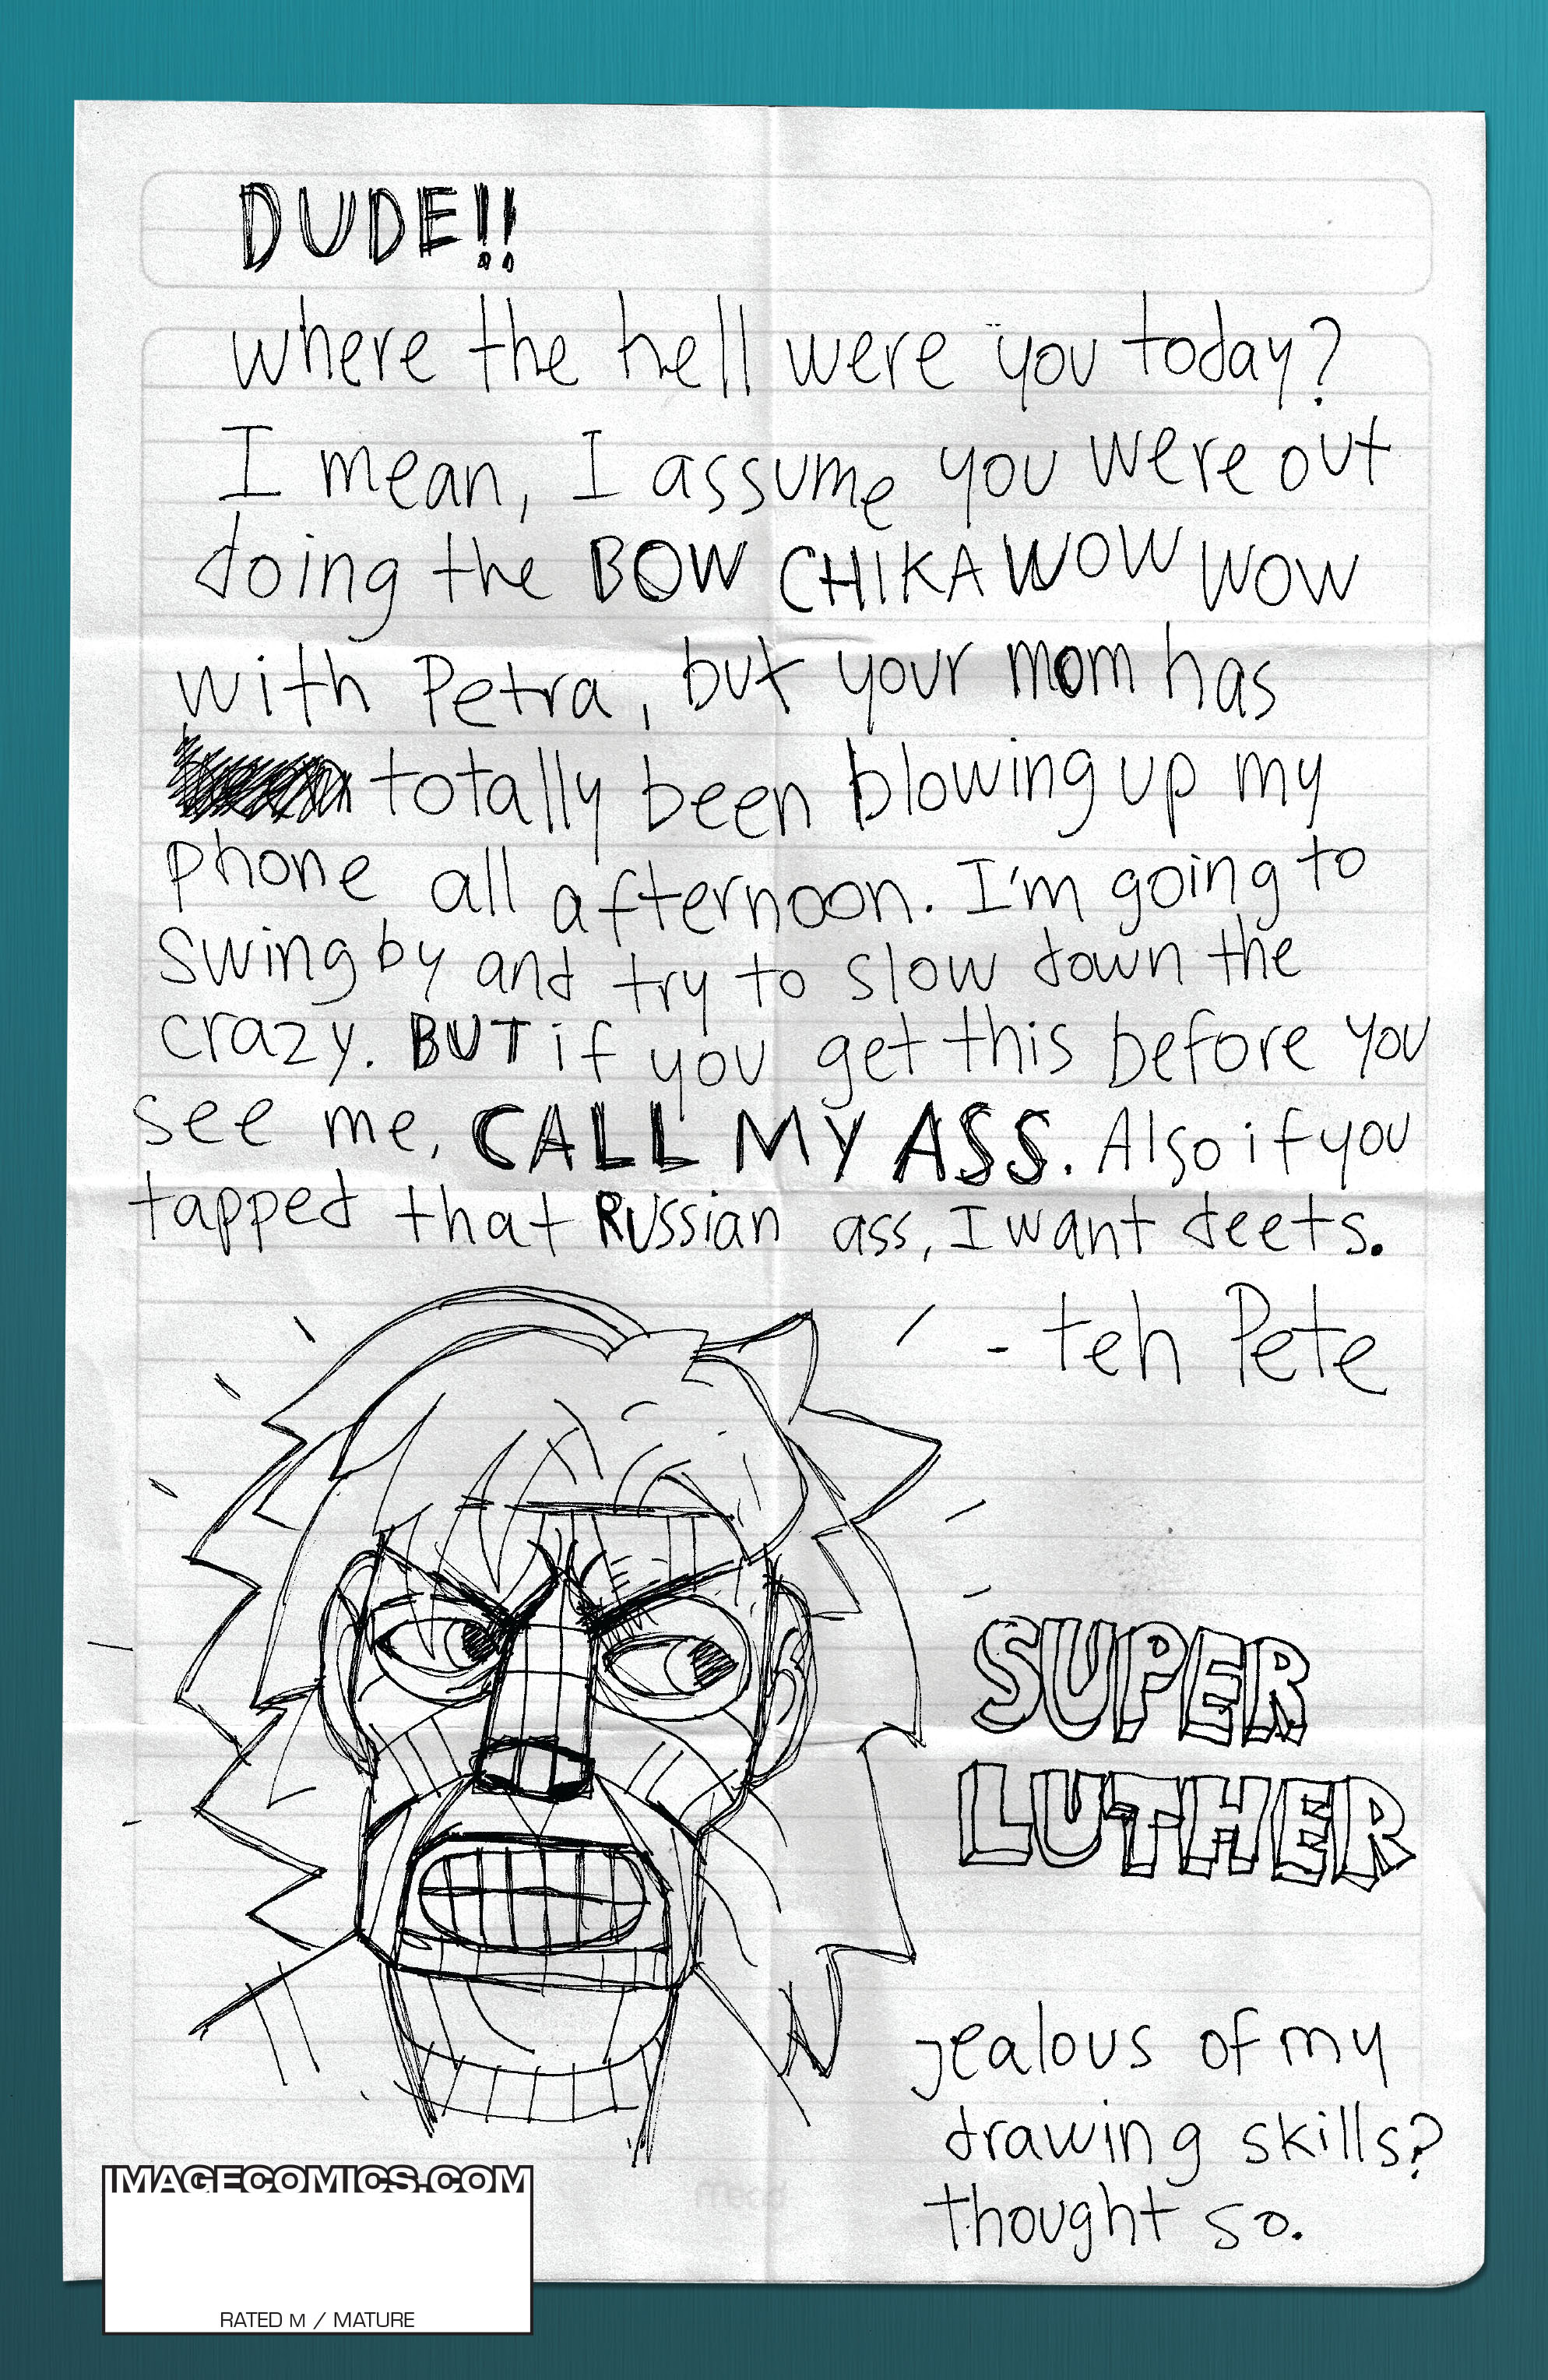 DUDE!!
where the hell were you today?
I mean, I assume you were out
doing the BOW CHIKA WOW WOW
with Petra, but your mom has
totally been blowing up my
phone all afternoon. I'm going to
swing by and try to slow down the
crazy. BUT if you get this before you
see me, CALL MY ASS. Also if you
tapped that Russian ass, I want deets.
- teh Pete
SUPER
LUTHER
jealous of my
drawing skills?
thought so.
mead
IMAGECOMICS.COM
RATED M / MATURE